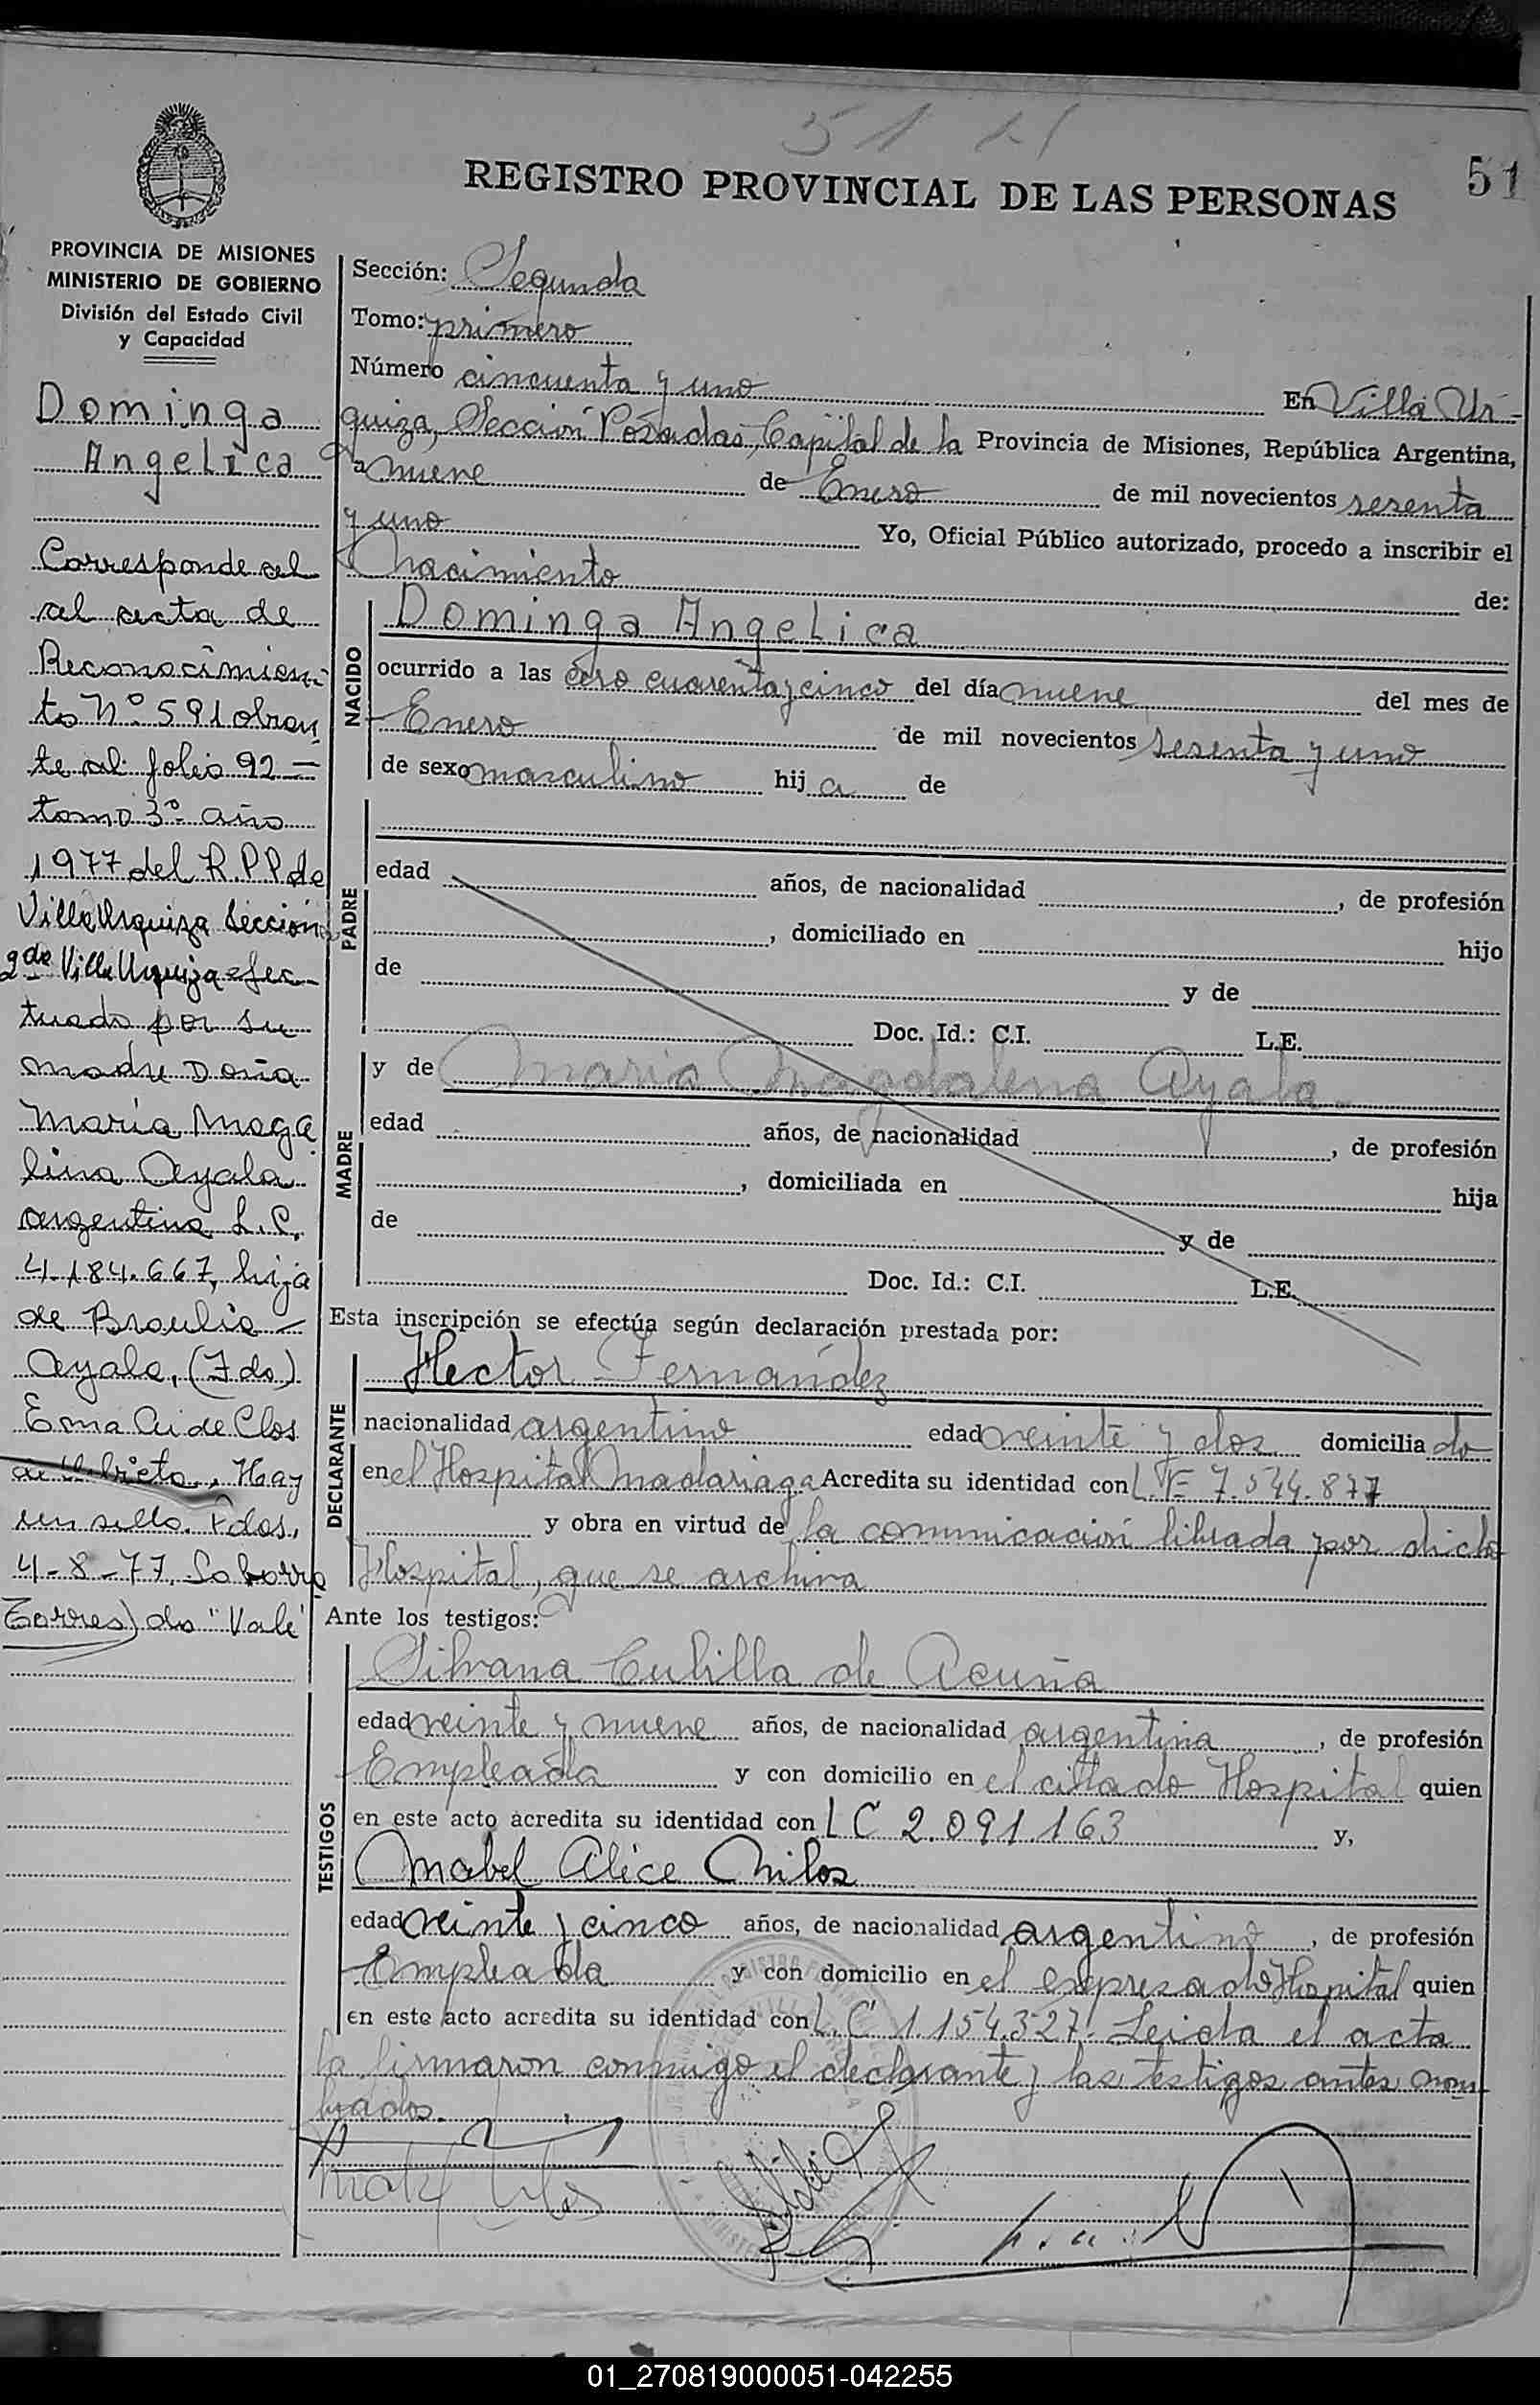 51
REGISTRO PROVINCIAL DE LAS PERSONAS
51
PROVINCIA DE MISIONES
MINISTERIO DE GOBIERNO
División del Estado Civil
y Capacidad
Dominga
Angelica
Corresponde al
al acta de
Reconocimien-
to Nº 591 obran
te al folio 92 =
tomo 3º año
1977 del R.P.P. de
Villa Urquiza Sección
2da Villa Urquiza efec-
tuado por su
madre Doña
María Maga
lina Ayala
argentina L.C.
4.184.667, hija
de Braulio
Ayala, (Fdo)
Ema de Clos
de, Hay
un sello. Fdos,
4-8-77.
Torres) do "Vale"
Sección: Segunda
Tomo: primero
Número cincuenta y uno En Villa Ur-
quiza, Sección Posadas, Capital de la Provincia de Misiones, República Argentina,
a nueve de Enero de mil novecientos sesenta
y uno Yo, Oficial Público autorizado, procedo a inscribir el
Nacimiento de:
NACIDO
Dominga Angelica
ocurrido a las cero cuarenta y cinco del día nueve del mes de
Enero de mil novecientos sesenta y uno
de sexo masculino hij a de
PADRE
edad años, de nacionalidad , de profesión
, domiciliado en hijo
de y de
Doc. Id.: C.I. L.E.
MADRE
y de Maria Magdalena Ayala.
edad años, de nacionalidad , de profesión
, domiciliada en hija
de y de
Doc. Id.: C.I. L.E.
Esta inscripción se efectúa según declaración prestada por:
DECLARANTE
Hector Fernández
nacionalidad argentino edad veinte y dos domicilia do
en el Hospital Madariaga Acredita su identidad con L.E 7.544.877
y obra en virtud de la comunicación librada por dicho
Hospital, que se archiva
Ante los testigos:
TESTIGOS
Silvana Cubilla de Acuña
edad veinte y nueve años, de nacionalidad argentina, de profesión
Empleada y con domicilio en el citado Hospital quien
en este acto acredita su identidad con LC 2.091.163 y,
Mabel Alice Milos
edad veinte y cinco años, de nacionalidad argentina, de profesión
Empleada y con domicilio en el expresado Hospital quien
en este acto acredita su identidad con L.C 1.154.327. Leida el acta
la firmaron conmigo el declarante y las testigos antes nom
brados.
01_270819000051-042255